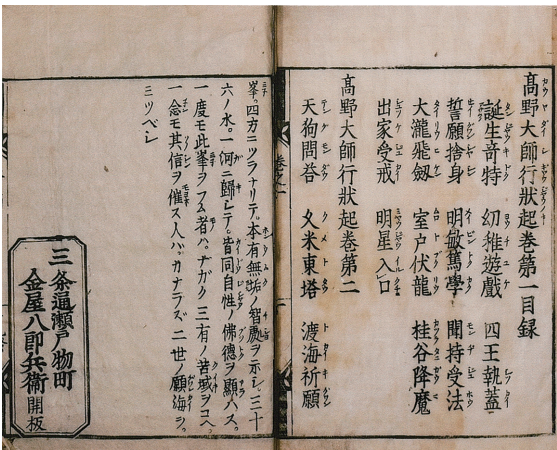 高野大師行狀起卷第一目録
誕生奇特 幻稚遊戲 四王執蓋
誓願捨身 明敏篤學 聞持受法
大瀧飛劔 室戸伏龍 桂谷降魔
出家受戒 明星入口
高野大師行狀起卷第二
天狗問答 久米東塔 渡海祈願
峯四方ニツラナリテ。本有無垢ノ智慶ヲ示シ。三十
六ノ水。一河ニ歸シテ。皆同自性ノ佛德ヲ顯ハス。
一度モ此峯ヲフム者ハ。ナガク三有ノ苦域ヲコヘ。
一念モ其信ヲ催ス人ハ。カナラズ二世ノ願海ヲ。
ミツベシ
三条通瀬戸物町
金屋八郎兵衛開板